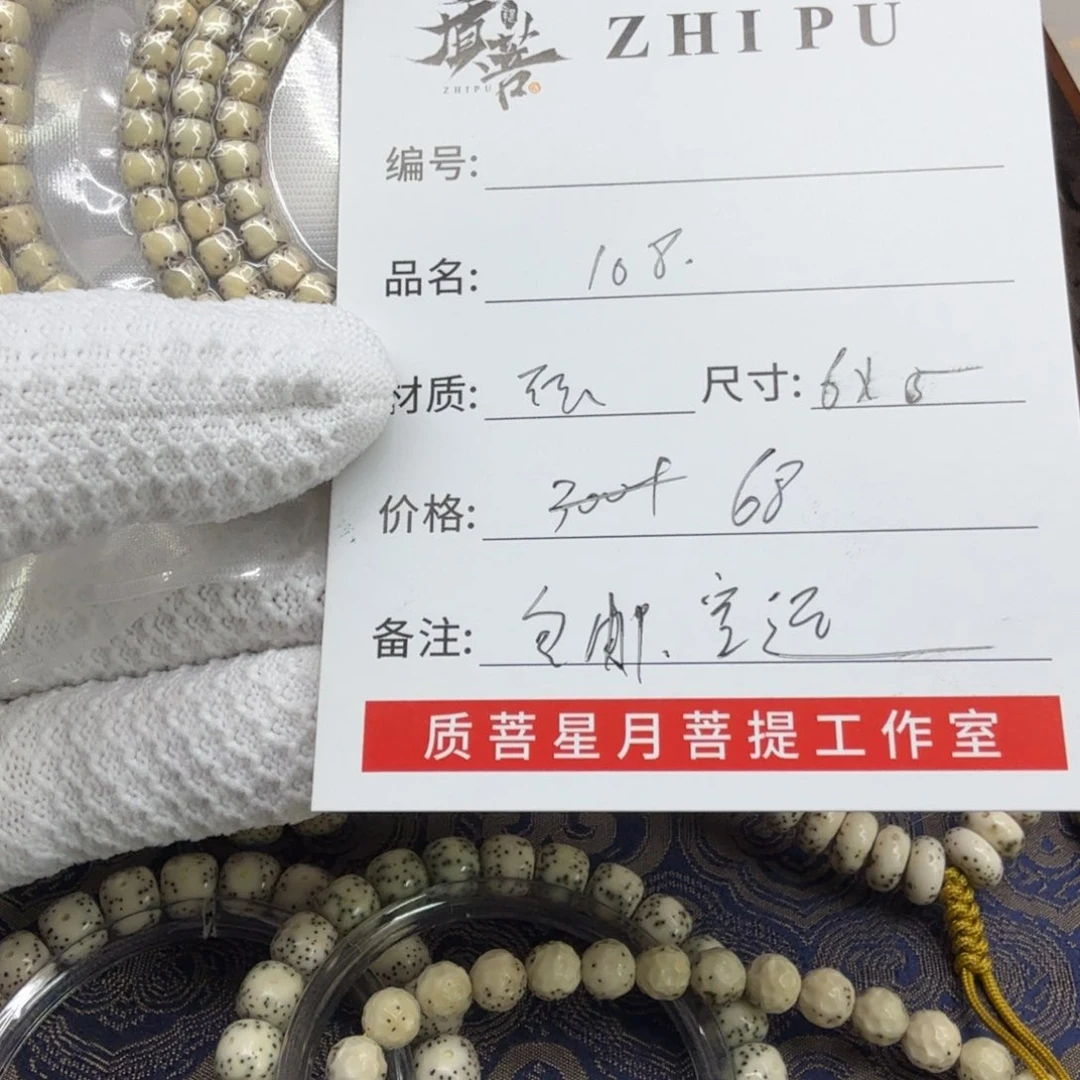 质菩 ZHIPU
ZHIPU
编号:
品名: 108.
材质: 尺寸: 6x5
价格: 300+ 68
备注: 包邮. 空运
质菩星月菩提工作室